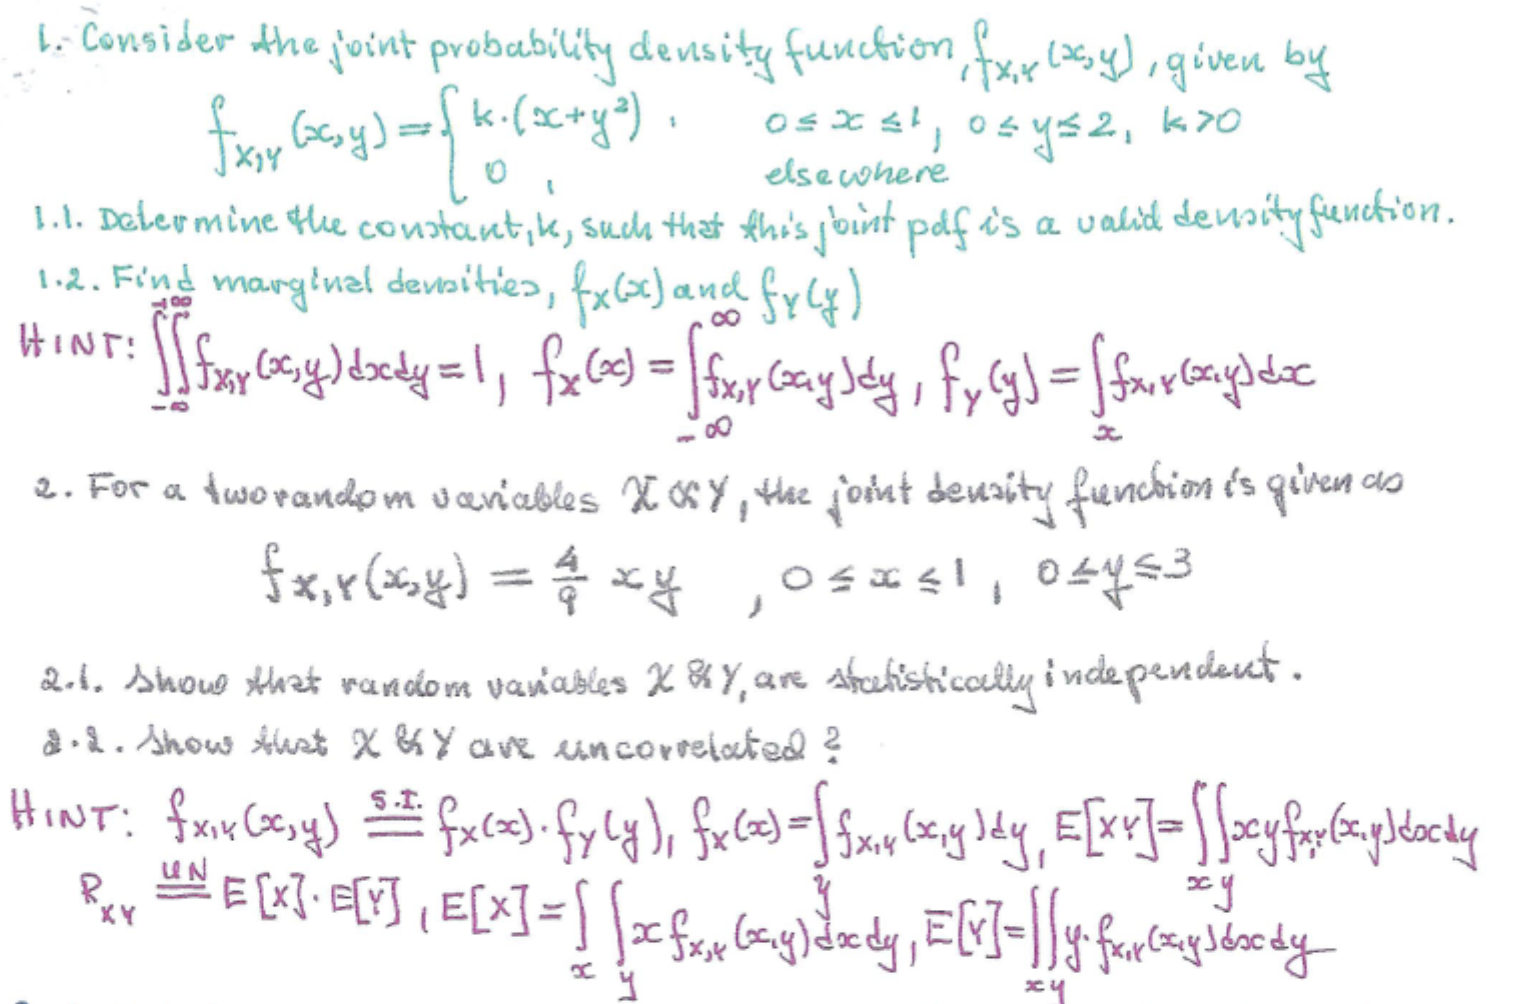 1. Consider the joint probability density function, f_{X,Y}(x,y), given by
f_{X,Y}(x,y) = { k·(x+y²), 0≤x≤1, 0≤y≤2, k>0
0, elsewhere
1.1. Determine the constant, k, such that this joint pdf is a valid density function.
1.2. Find marginal densities, f_X(x) and f_Y(y)
HINT: ∫∫_{-∞}^{+∞} f_{X,Y}(x,y)dxdy = 1, f_X(x) = ∫_{-∞}^{∞} f_{X,Y}(x,y)dy, f_Y(y) = ∫_x f_{X,Y}(x,y)dx
2. For a two random variables X & Y, the joint density function is given as
f_{X,Y}(x,y) = 4/9 xy, 0≤x≤1, 0≤y≤3
2.1. Show that random variables X & Y, are statistically independent.
2.2. Show that X & Y are uncorrelated?
HINT: f_{X,Y}(x,y) =^{S.I.} f_X(x)·f_Y(y), f_X(x) = ∫_y f_{X,Y}(x,y)dy, E[XY] = ∫_x∫_y xy f_{X,Y}(x,y)dxdy
R_{XY} =^{UN} E[X]·E[Y], E[X] = ∫_x∫_y x f_{X,Y}(x,y)dxdy, E[Y] = ∫_x∫_y y·f_{X,Y}(x,y)dxdy